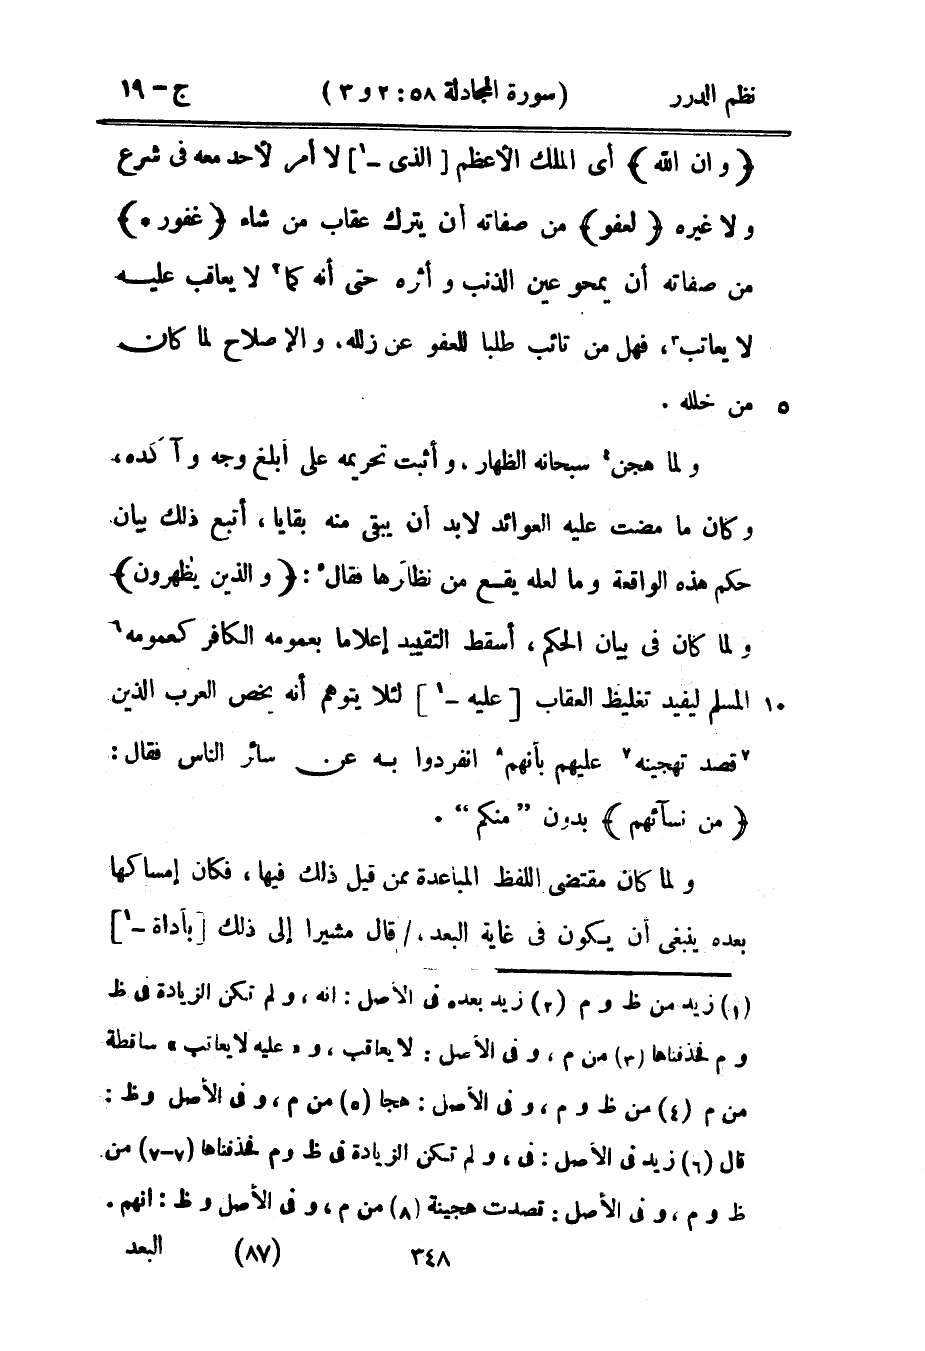 نظم الدرر (سورة المجادلة ٥٨ : ٢ و ٣ ) ج – ١٩
﴿ و ان الله ﴾ أى الملك الأعظم [ الذى –١] لا أمر لأحد معه فى شرع
و لا غيره ﴿ لعفو ﴾ من صفاته أن يترك عقاب من شاء ﴿ غفور ٥ ﴾
من صفاته أن يمحو عين الذنب و أثره حتى أنه كما٢ لا يعاقب عليه
لا يعاتب٣، فهل من تائب طلبا للعفو عن زلله، و الإصلاح لما كان
٥ من خلله .
و لما هجن٤ سبحانه الظهار، و أثبت تحريمه على أبلغ وجه و آكده،
وكان ما مضت عليه العوائد لابد أن يبقى منه بقايا، أتبع ذلك بيان
حكم هذه الواقعة و ما لعله يقع من نظائرها فقال٥ : ﴿ و الذين يظهرون ﴾
و لما كان فى بيان الحكم، أسقط التقييد إعلاما بعمومه الكافر كعمومه٦
١٠ المسلم ليفيد تغليظ العقاب [ عليه –١ ] لئلا يتوهم أنه يخص العرب الذين
٧قصد تهجينه٧ عليهم بأنهم٨ انفردوا به عن سائر الناس فقال:
﴿ من نسآئهم ﴾ بدون ” منكم “ .
و لما كان مقتضى اللفظ المباعدة ممن قيل ذلك فيها، فكان إمساكها
بعده ينبغى أن يكون فى غاية البعد، / قال مشيرا إلى ذلك [بأداة –١]
(١) زيد من ظ و م (٢) زيد بعده فى الأصل : انه ، و لم تكن الزيادة فى ظ
و م فحذفناها (٣) من م ، و فى الأصل : لا يعاقب ، و « عليه لا يعاتب » ساقطة
من م (٤) من ظ و م ، و فى الأصل : هجا (٥) من م ، و فى الأصل وظ :
قال (٦) زيد فى الأصل : فى ، و لم تكن الزيادة فى ظ وم فحذفناها (٧–٧) من
ظ و م ، و فى الأصل : قصدت هجينة (٨) من م ، و فى الأصل و ظ : انهم .
٣٤٨ (٨٧) البعد